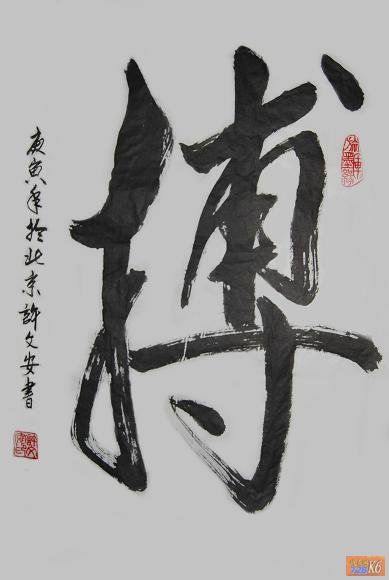 搏
庚寅年於北京許文安書
K6